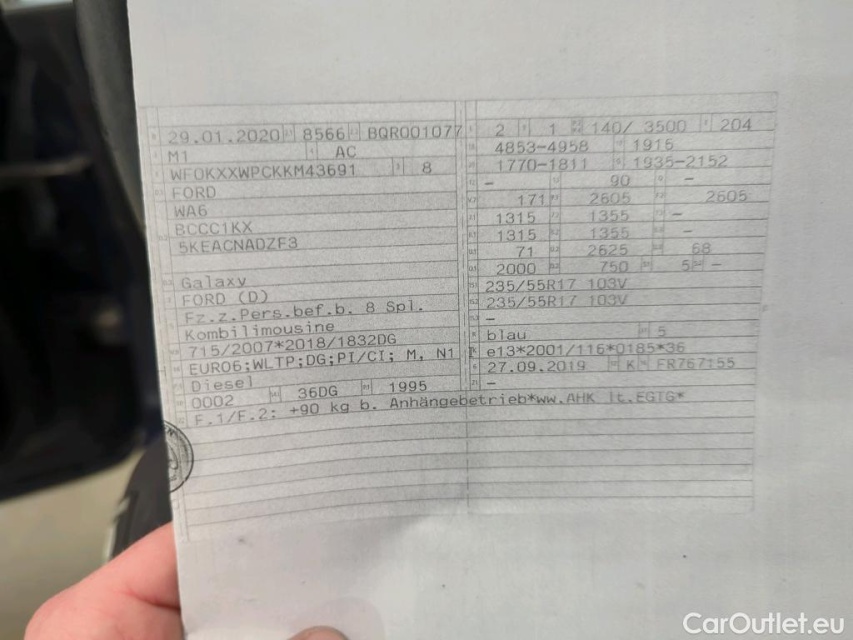 29.01.2020 8566 BQR001077
M1 AC
WF0KXXWPCKKM43691 8
FORD
WA6
BCCC1KX
5KEACNADZF3
Galaxy
FORD (D)
Fz.z.Pers.bef.b. 8 Spl.
Kombilimousine
715/2007*2018/1832DG
EURO6;WLTP;DG;PI/CI; M, N1
Diesel
0002 36DG 1995
F.1/F.2: +90 kg b. Anhängebetrieb*ww.AHK lt.EGTG*
2 1 140/ 3500 204
4853-4958 1916
1770-1811 1935-2152
- 90 -
171 2605 2605
1315 1355 -
1315 1355 -
71 2625 68
2000 750 5 -
235/55R17 103V
235/55R17 103V
-
blau 5
e13*2001/116*0185*36
27.09.2019 K FR767155
-
CarOutlet.eu